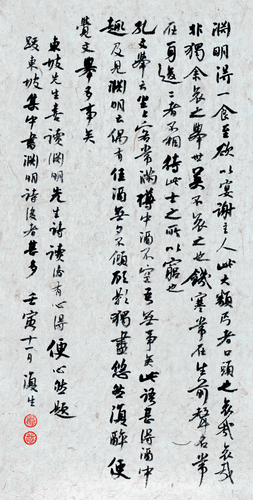 渊明得一食至欲以冥谢主人此大类丐者口头之哀哉哀哉
非独余哀之举世莫不哀之也饥寒常在生前声名常
在身后二者不相待此士之所以穷也
孔文举云坐上客常满樽中酒不空吾无事矣此语甚得酒中
趣及见渊明云偶有佳酒无夕不倾顾影独尽悠然复醉便
觉文举多事矣
东坡先生喜读渊明先生诗读后有心得便欣然题
跋东坡集中书渊明诗后者甚多 壬寅十一月